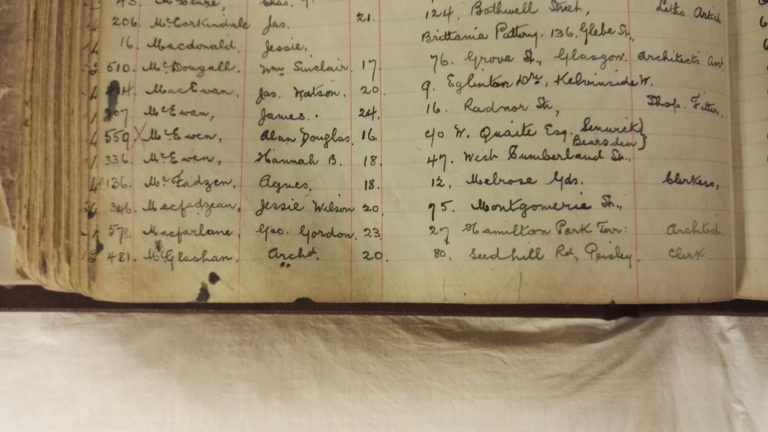 43. McClure, Chas. 124, Bothwell Street, Litho Artist
206 McCorkindale Jas. 21. Brittania Pottery. 136, Glebe St.,
16. Macdonald, Jessie. 76. Grove St., Glasgow. Architects
510. McDougall, Wm Sinclair, 17. 9. Eglinton Dri, Kelvinside W.
MacEwan, Jas. Watson, 20. 16. Radnor St., Shop. Fitter.
McEwan, James. 24. c/o W. Quaite Esq.
559 X McEwen, Alan Douglas, 16 Bearsden }
336. McEwen, Hannah B. 18. 47. West Cumberland St.,
136. McFadzen, Agnes, 18. 12, Melrose Gds. Clerkess,
346. Macfadzean, Jessie Wilson 20. 75. Montgomerie St.,
578. Macfarlane, Geo. Gordon, 23. 27 Hamilton Park Terr: Architect
481. McGlashan, Archd. 20. 80. Seedhill Rd, Paisley, Clerk.